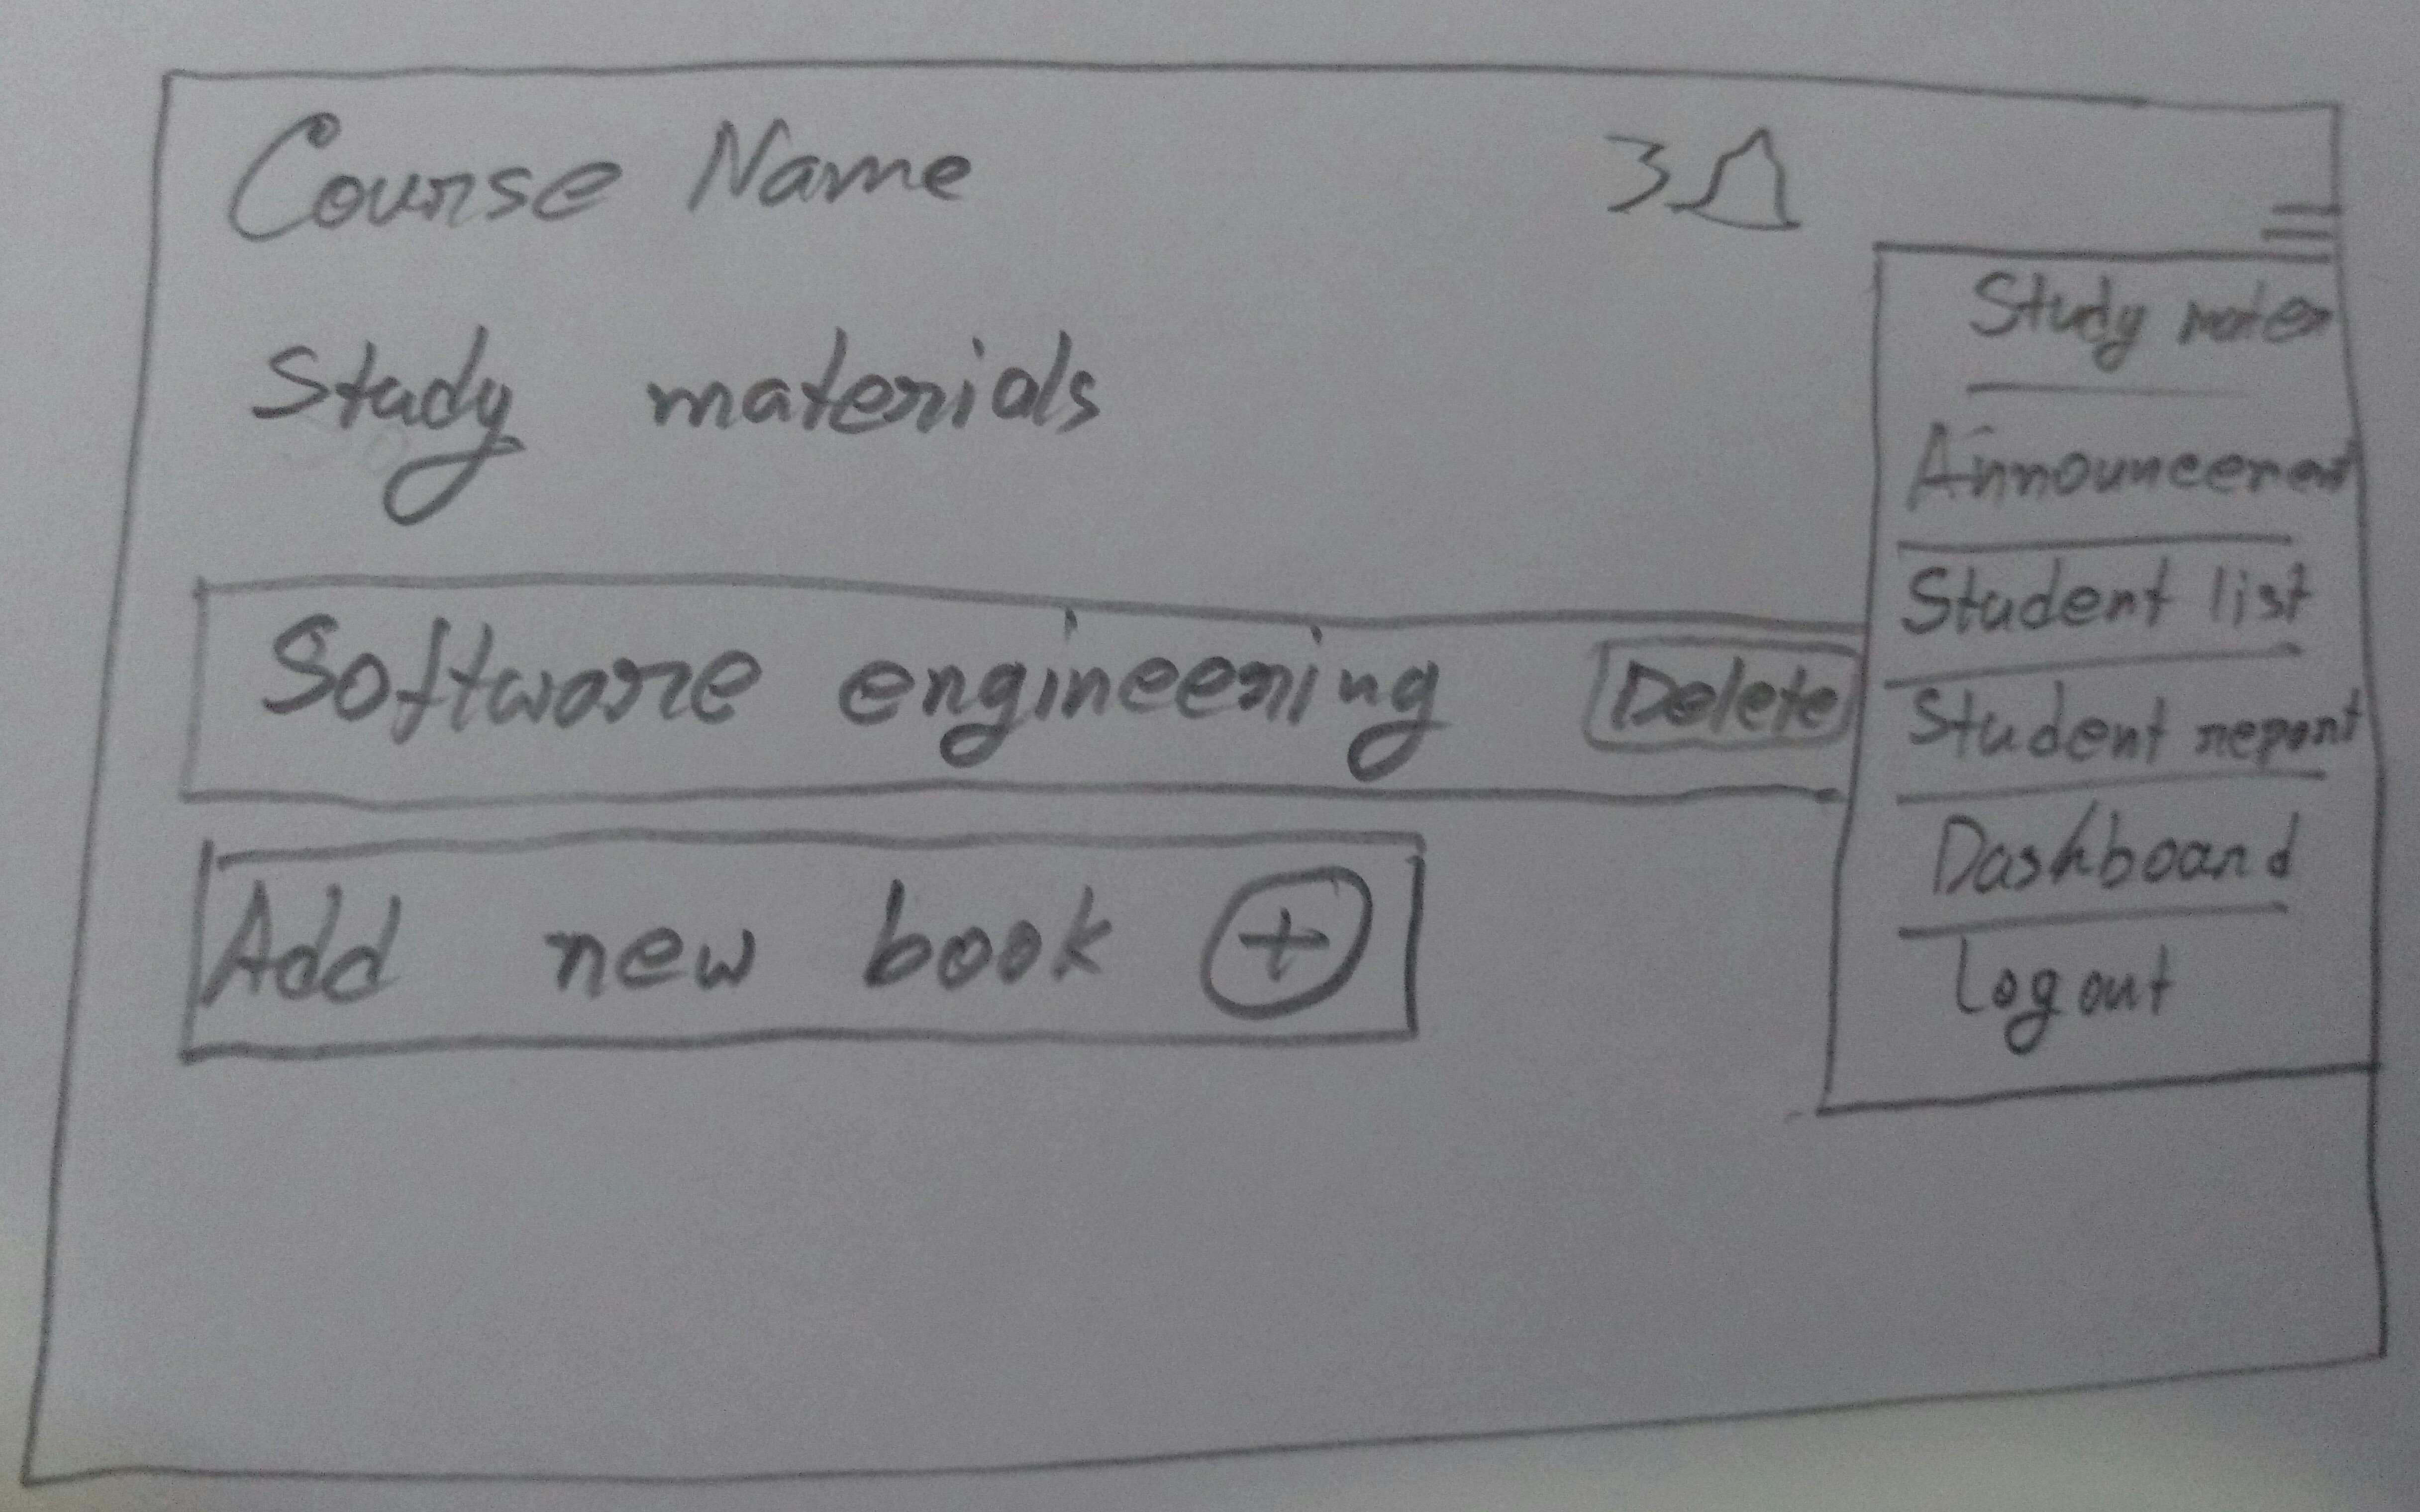 Course Name
3
Study materials
Software engineering
Delete
Add new book +
Study mater
Announcement
Student list
Student report
Dashboard
Log out